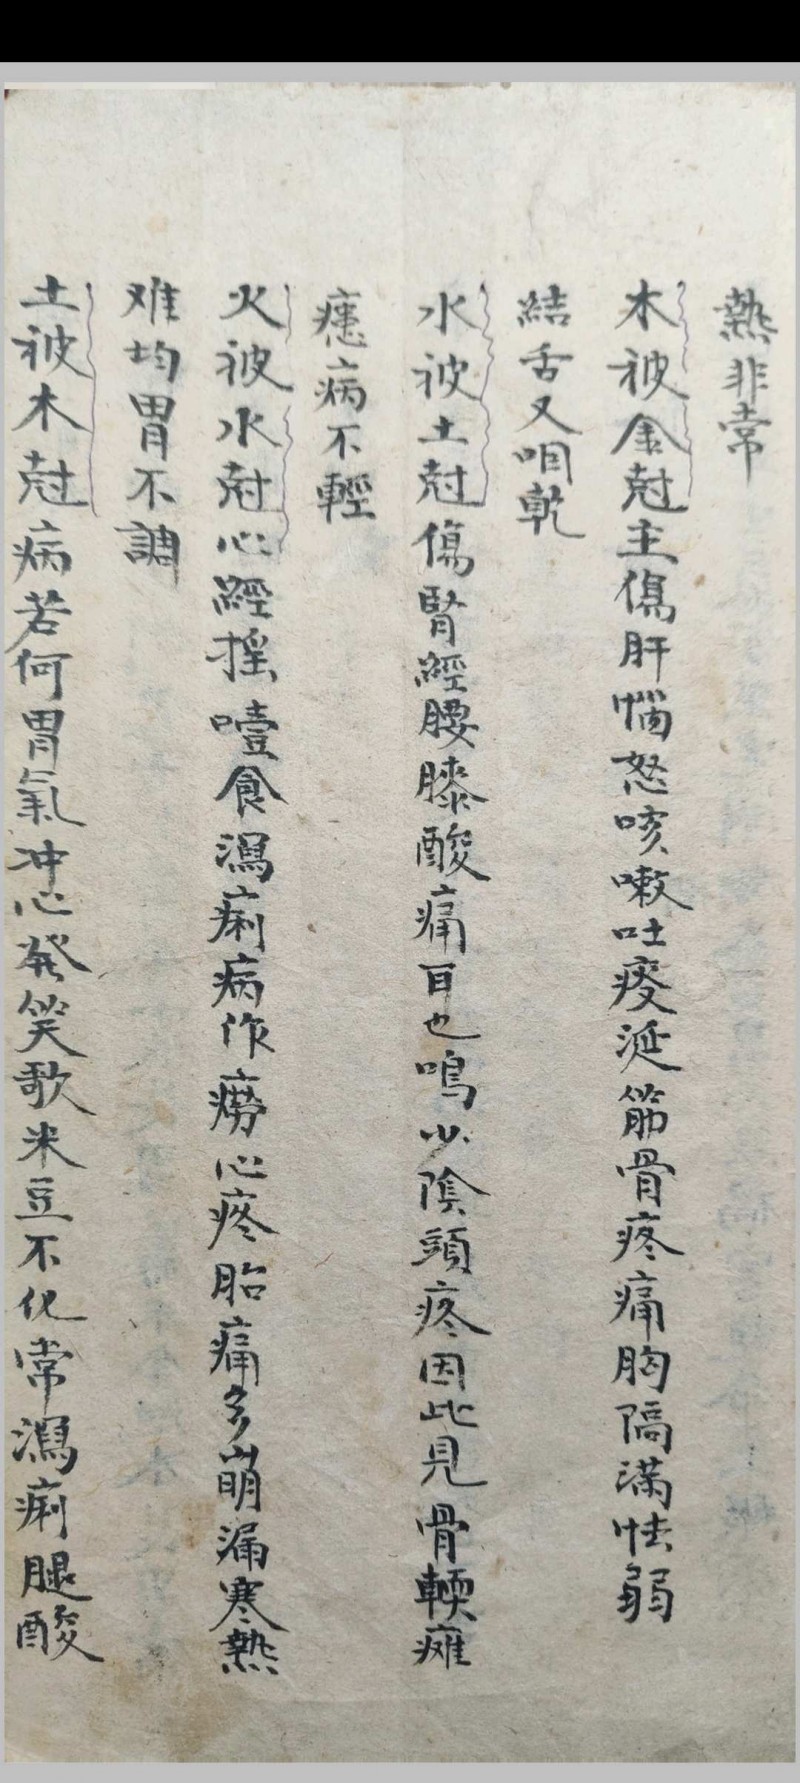 熱非常
木被金尅主傷肝惱怒咳嗽吐痰涎筋骨疼痛胸隔滿怯弱
結舌又咽乾
水被土尅傷腎經腰膝酸痛耳也鳴少陰頭疼因此見骨輭瘫
病不輕
火被水尅心經摇噎食瀉痢病作痨心疼胎痛多崩漏寒熱
难均胃不調
土被木尅病若何胃氣冲心発笑歌米豆不化常瀉痢腿酸